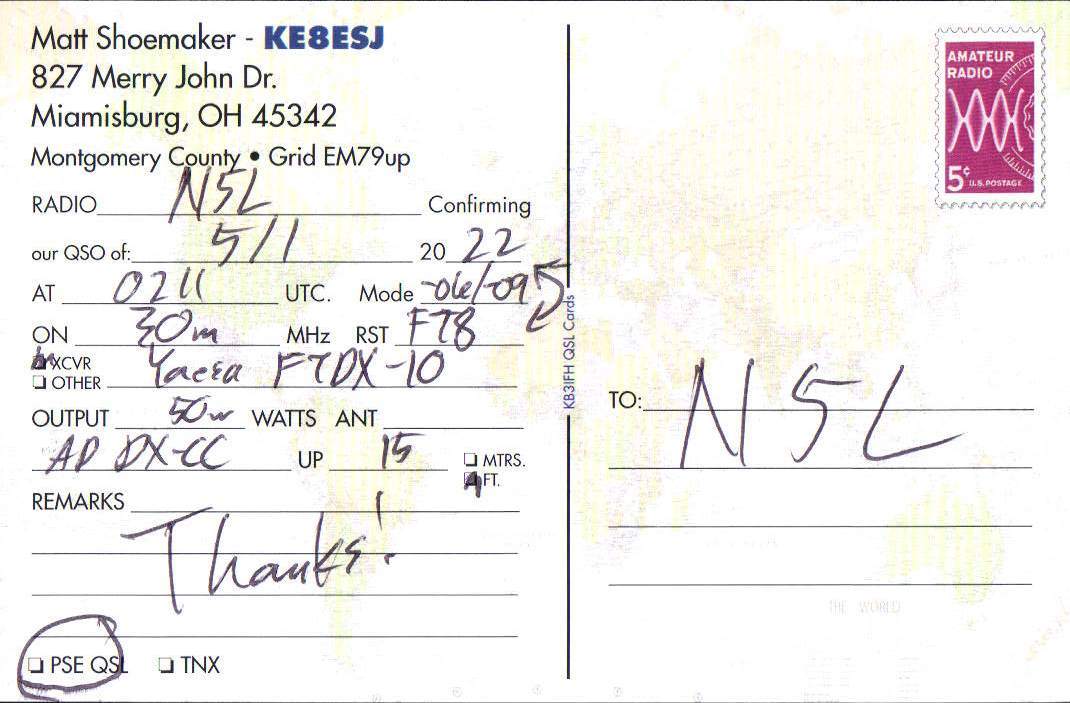 Matt Shoemaker - KE8ESJ
827 Merry John Dr.
Miamisburg, OH 45342
Montgomery County • Grid EM79up
RADIO N5L Confirming
our QSO of: 5/1 20 22
AT 0211 UTC. Mode -06/-09
ON 30m MHz RST FT8
XCVR
OTHER Yaesu FTDX-10
OUTPUT 50w WATTS ANT
AD DX-CC UP 15 MTRS.
FT.
REMARKS
Thanks!
PSE QSL TNX
KB3IFH QSL Cards
AMATEUR
RADIO
5¢ U.S. POSTAGE
TO: N5L
THE WORLD